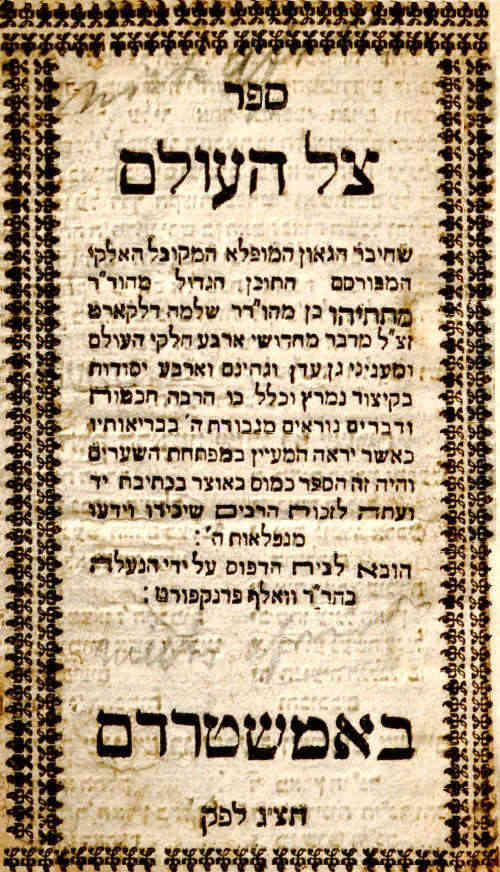 ספר
צל העולם
שחיבר הגאון המופלא המקובל האלקי
המפורסם התוכן הגדול מהור"ר
מתתיהו בן מהו"רר שלמה דלקארט
זצ"ל מדבר מחדושי ארבע חלקי העולם
ומעניני גן עדן וגהינם וארבע יסודות
בקיצור נמרץ וכלל בו הרבה חכמות
ודברים נוראים מגבורת ה' בבריאותיו
כאשר יראה המעיין במפתחת השערים
והיה זה הספר כמוס באוצר בכתיבת יד
ועתה לזכות הרבים שיכירו וידעו
מנפלאות ה':
הובא לבית הדפוס על ידי הנעלה
כהר"ר וואלף פרנקפורט:
באמשטרדם
תצ"ג לפק